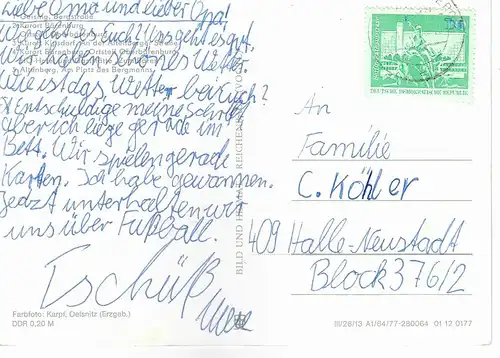 Liebe Oma und lieber Opa!
Wie geht es Euch? Uns geht es gut.
Wir haben schönes Wetter.
Wie ist das Wetter bei Euch?
Entschuldige meine Schrift
aber ich liege gerade im
Bett. Wir spielen gerade
Karten. Ich habe gewannen.
Jedzt unterhalten wir
uns über Fußball.
Tschüß
Geising, Bergstraße
Kurort Bärenburg
Altenberg, Am Platz des Bergmanns
Farbfoto: Karpf, Oelsnitz (Erzgeb.)
DDR 0,20 M
BILD UND HEIMAT REICHENBACH (VOGTL)
DEUTSCHE DEMOKRATISCHE REPUBLIK
An
Familie
C. Köhler
409 Halle-Neustadt
Block 376/2
III/26/13 A1/64/77-280064 01 12 0177